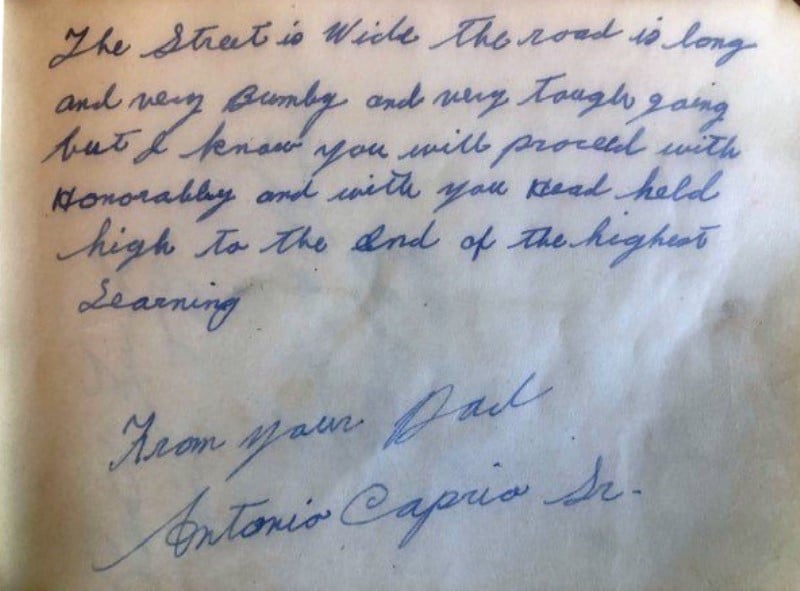 The Street is Wide the road is long
and very Bumby and very tough going
but I know you will proceed with
Honorablly and with you Head held
high to the End of the highest
Learning
From your Dad
Antonio Caprio Sr.